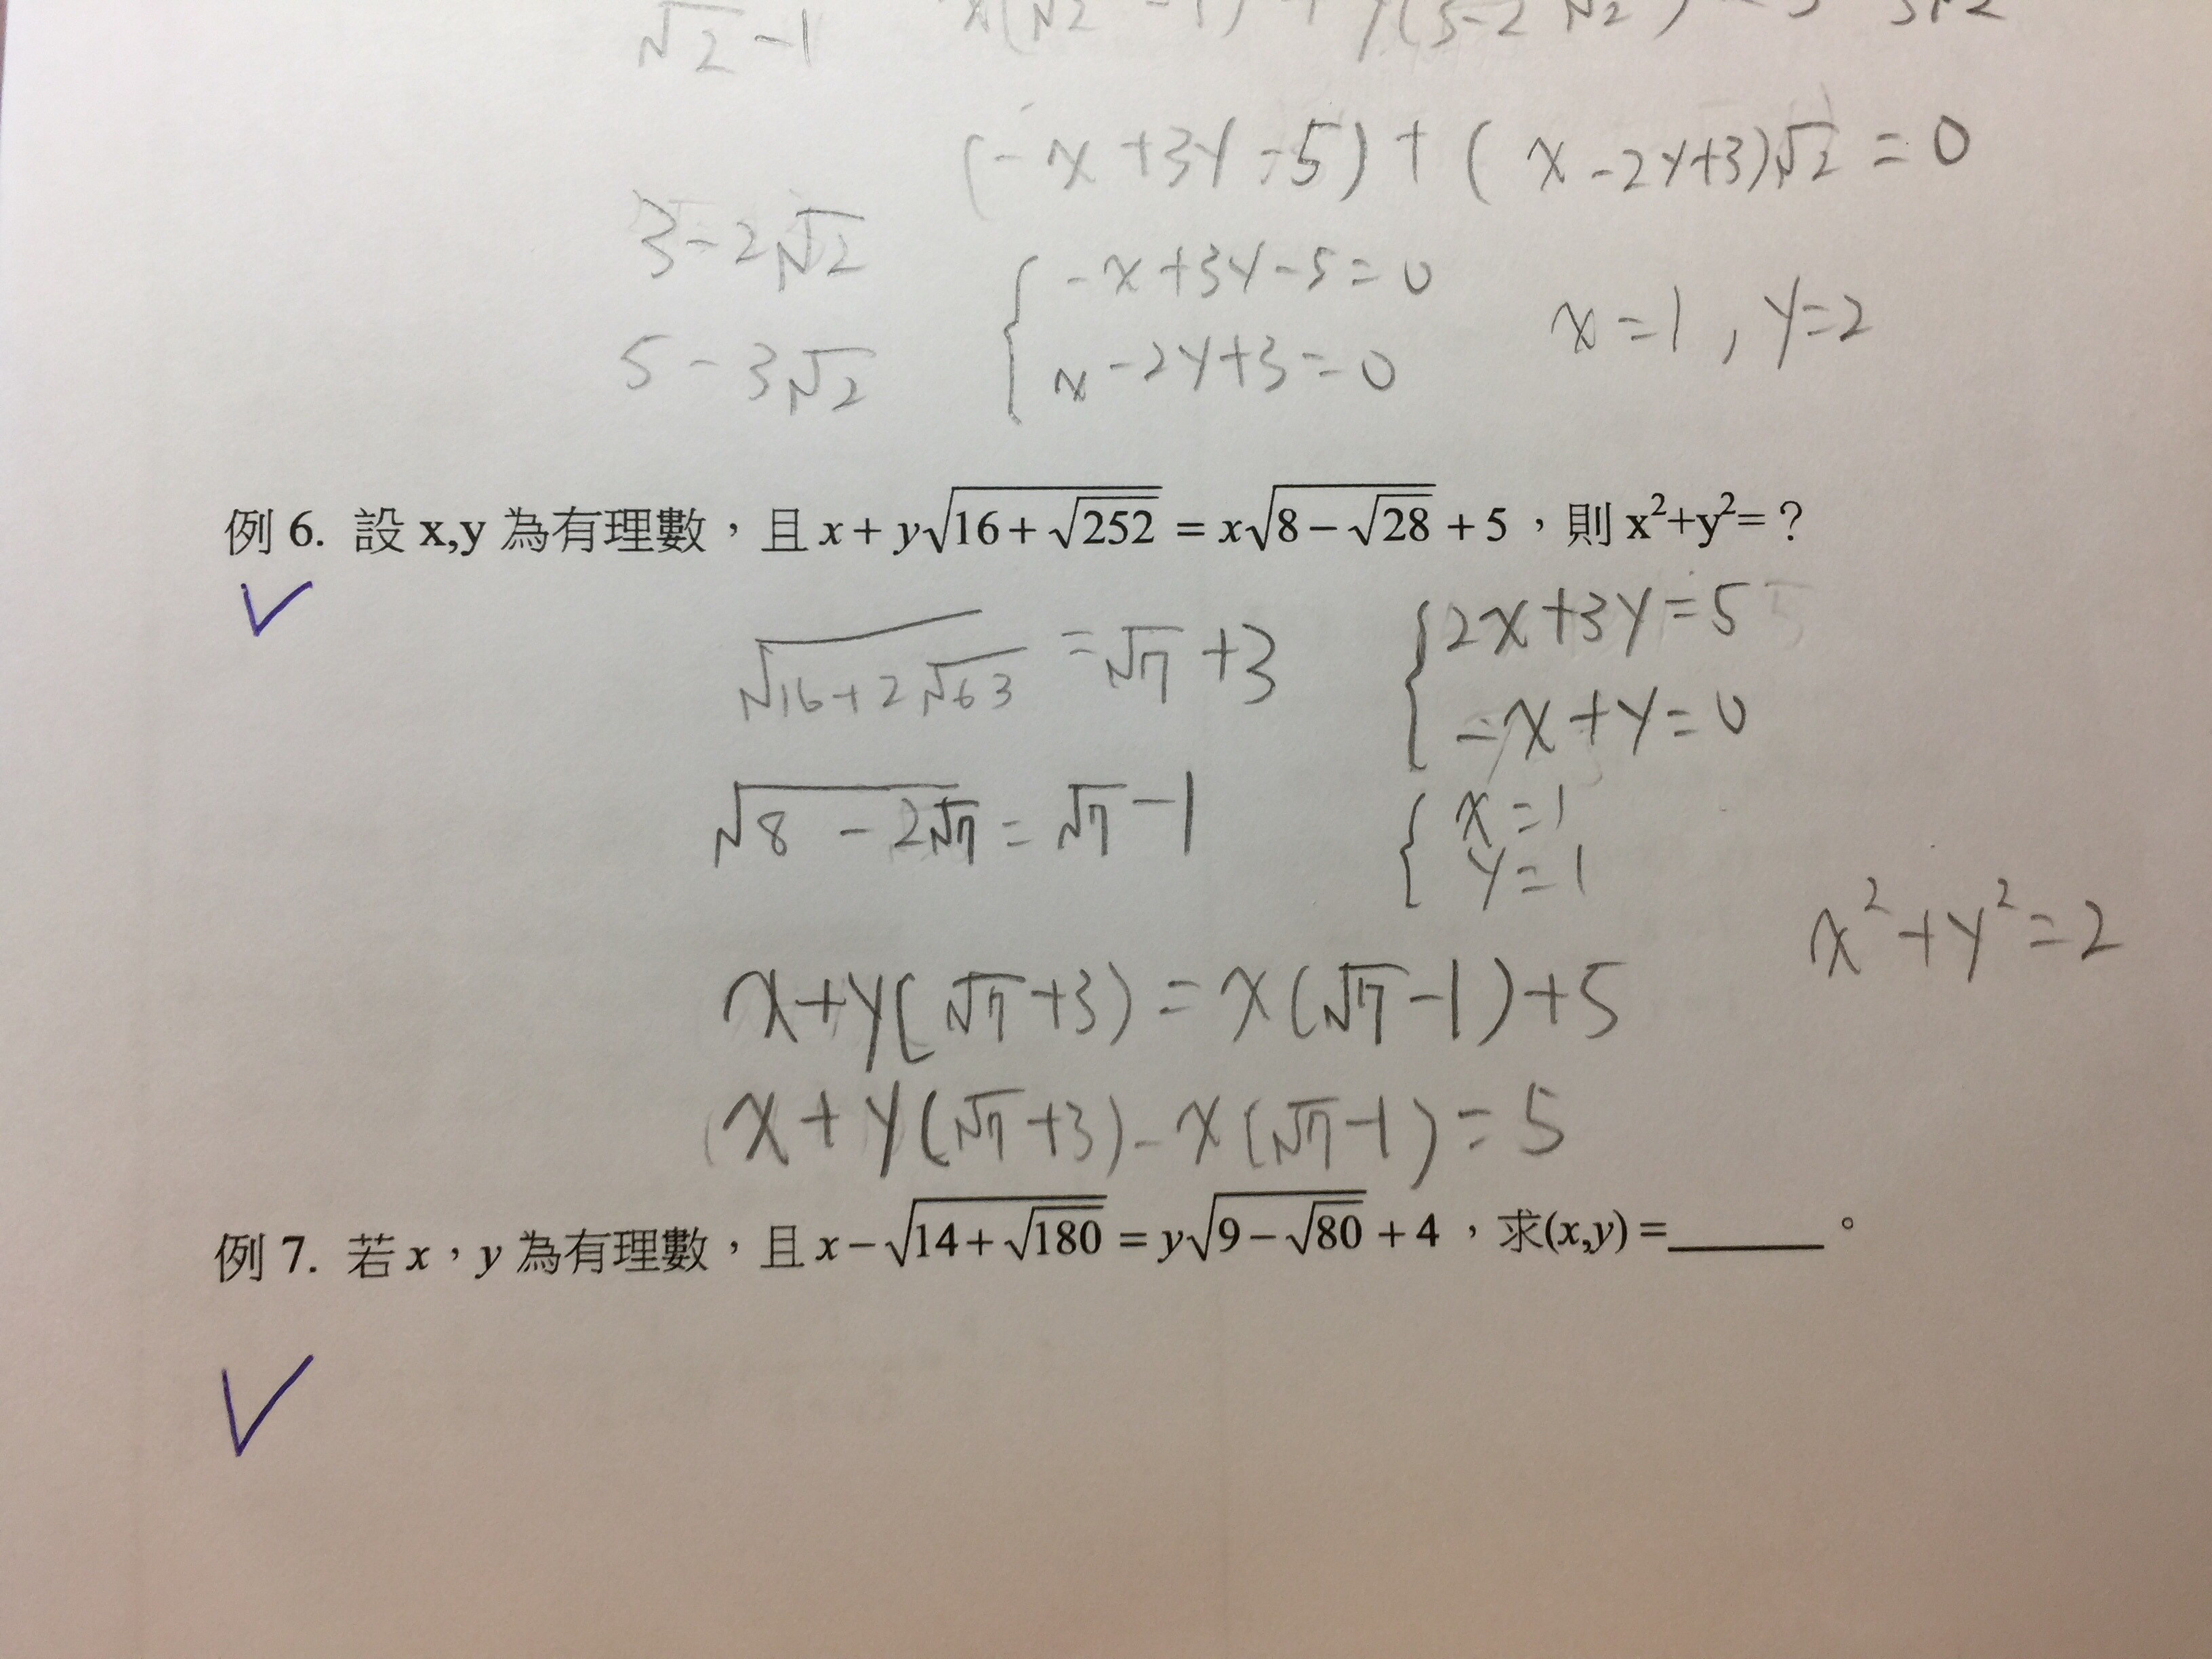 √2 -1
(-x+3y-5)+(x-2y+3)√2=0
3-2√2
-x+3y-5=0
5-3√2
x-2y+3=0
x=1, y=2
例 6. 設 x,y 為有理數，且 x + y√(16+√252) = x√(8−√28) + 5，則 x²+y²=？
√(16+2√63) =√7+3
2x+3y=5
-x+y=0
√(8-2√7) = √7-1
x=1
y=1
x²+y²=2
x+y(√7+3)=x(√7-1)+5
x+y(√7+3)-x(√7-1)=5
例 7. 若 x，y 為有理數，且 x−√(14+√180) = y√(9−√80) + 4，求(x,y) =______。